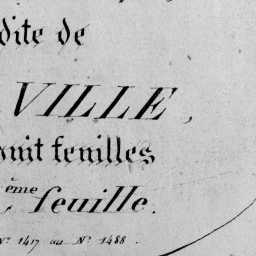 dite de
VILLE,
huit feuilles
ème feuille.
N° 1417 au N° 1488.